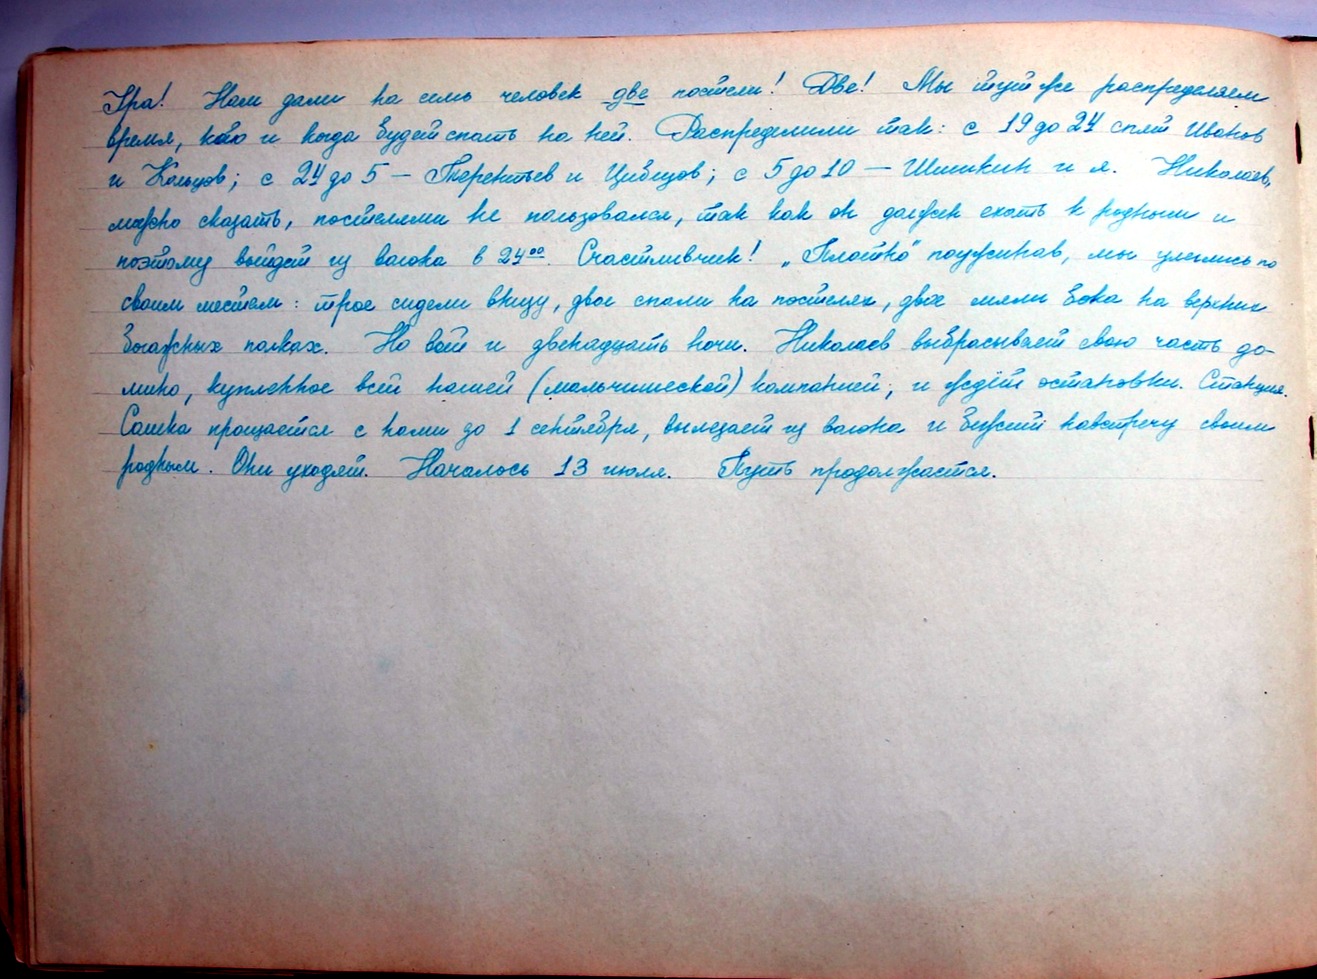 Ура! Нам дали на семь человек две постели! Две! Мы тут же распределяем
время, кто и когда будет спать на ней. Распределили так: с 19 до 24 спят Иванов
и Кольцов; с 24 до 5 — Терентьев и Цибизов; с 5 до 10 — Шишкин и я. Николаев,
можно сказать, постелями не пользовался, так как он должен ехать к родным и
поэтому выйдет из вагона в 24⁰⁰. Счастливчик! „Плотно" поужинав, мы улеглись по
своим местам: трое сидели внизу, двое спали на постелях, двое мяли бока на верхних
багажных полках. Но вот и двенадцать ночи. Николаев выбрасывает свою часть до-
мино, купленное всей нашей (мальчишеской) компанией, и ждёт остановки. Станция.
Сашка прощается с нами до 1 сентября, вылезает из вагона и бежит навстречу своим
родным. Они уходят. Началось 13 июля. Путь продолжается.